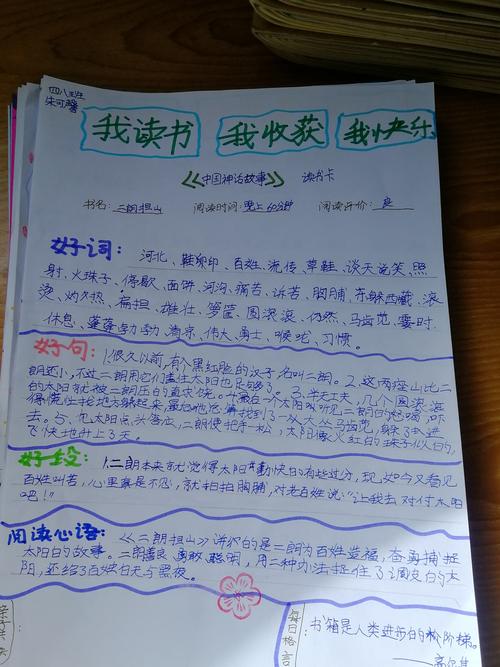 四八班
朱可馨
我读书 我收获 我快乐
《中国神话故事》 读书卡
书名:二郎担山 阅读时间:晚上60分钟 阅读评价:良
好词:河北、鞋卵印、百姓、流传、草鞋、谈天说笑、照
射、火珠子、停歇、面饼、河沟、痛苦、诉苦、胸脯、东躲西藏、滚
烫、灼热、扁担、雄壮、箩筐、圆滚滚、仍然、马齿苋、霎时、
休息、蓬蓬勃勃、清凉、伟大、勇士、喉咙、习惯。
好句:1.很久以前,有个黑红脸的汉子名叫二郎。2.这两座山比二
郎还小,不过二郎用它们压住太阳也足够了。3.半天工夫,几个圆滚滚
的太阳就被二郎压的直求饶。4.
去。5.见太阳点头答应,二郎便把手一松,太阳像火红的珠子似的,
飞快地升上了天。
好段:1.二郎本来就觉得太阳勤快的有些过分,现如今又看见
百姓叫苦,心里真是不忍,就拍拍胸脯,对老百姓说:“让我去对付太阳
吧!”
阅读心语:《二郎担山》讲的是二郎为百姓造福,奋勇捕捉
太阳的故事。二郎善良、勇敢、聪明,用二种办法捉住了调皮的太
阳,还给了百姓白天与黑夜。
每日格言
书籍是人类进步的阶梯。